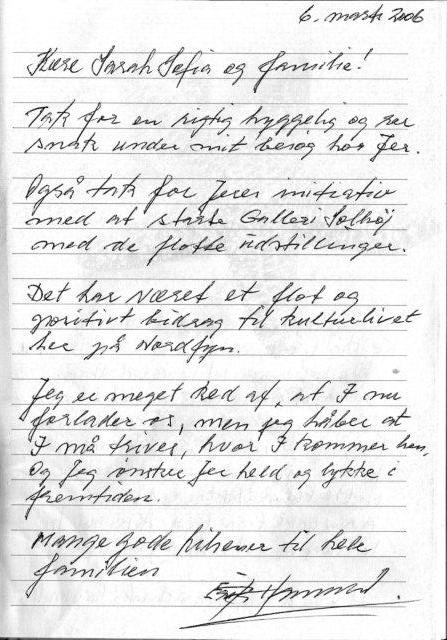 6. marts 2006
Kære Sarah Sofia og familie!
Tak for en rigtig hyggelig og rar
snak under mit besøg hos Jer.
Også tak for Jeres initiativ
med at starte Galleri Solhøj
med de flotte udstillinger.
Det har været et flot og
positivt bidrag til kulturlivet
her på Nordfyn.
Jeg er meget ked af, at I nu
forlader os, men jeg håber at
I må trives, hvor I kommer hen,
og jeg ønsker Jer held og lykke i
fremtiden.
Mange gode hilsener til hele
familien